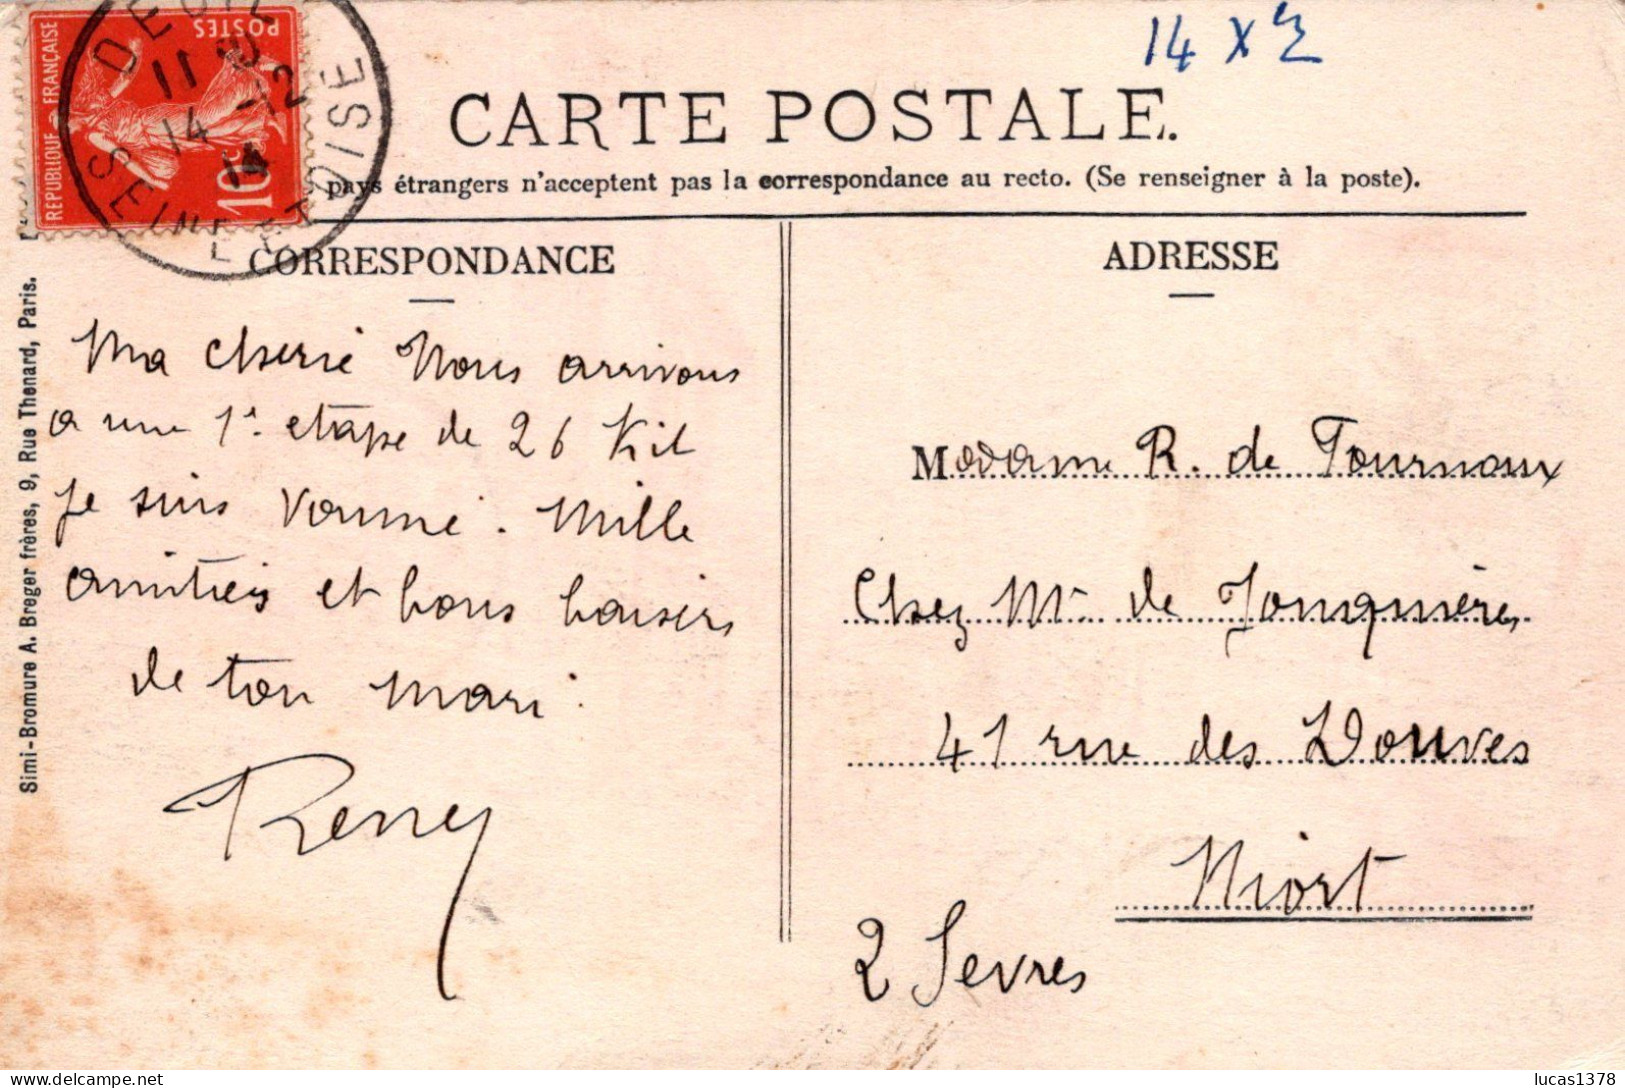 14 X
CARTE POSTALE.
pays étrangers n'acceptent pas la correspondance au recto. (Se renseigner à la poste).
REPUBLIQUE FRANÇAISE
POSTES
10c
11
14 -12
14
SEINE ET OISE
Simi-Bromure A. Breger frères, 9, Rue Thenard, Paris.
CORRESPONDANCE
Ma cherie Nous arrivons
a une 1e. etape de 26 Kil
Je suis vanné. Mille
amitiés et bons baisers
de ton mari.
ADRESSE
Madame R. de Tournaux
Chez Mr de Jonquières
41 rue des Douves
Niort
2 Sevres
lucas1378